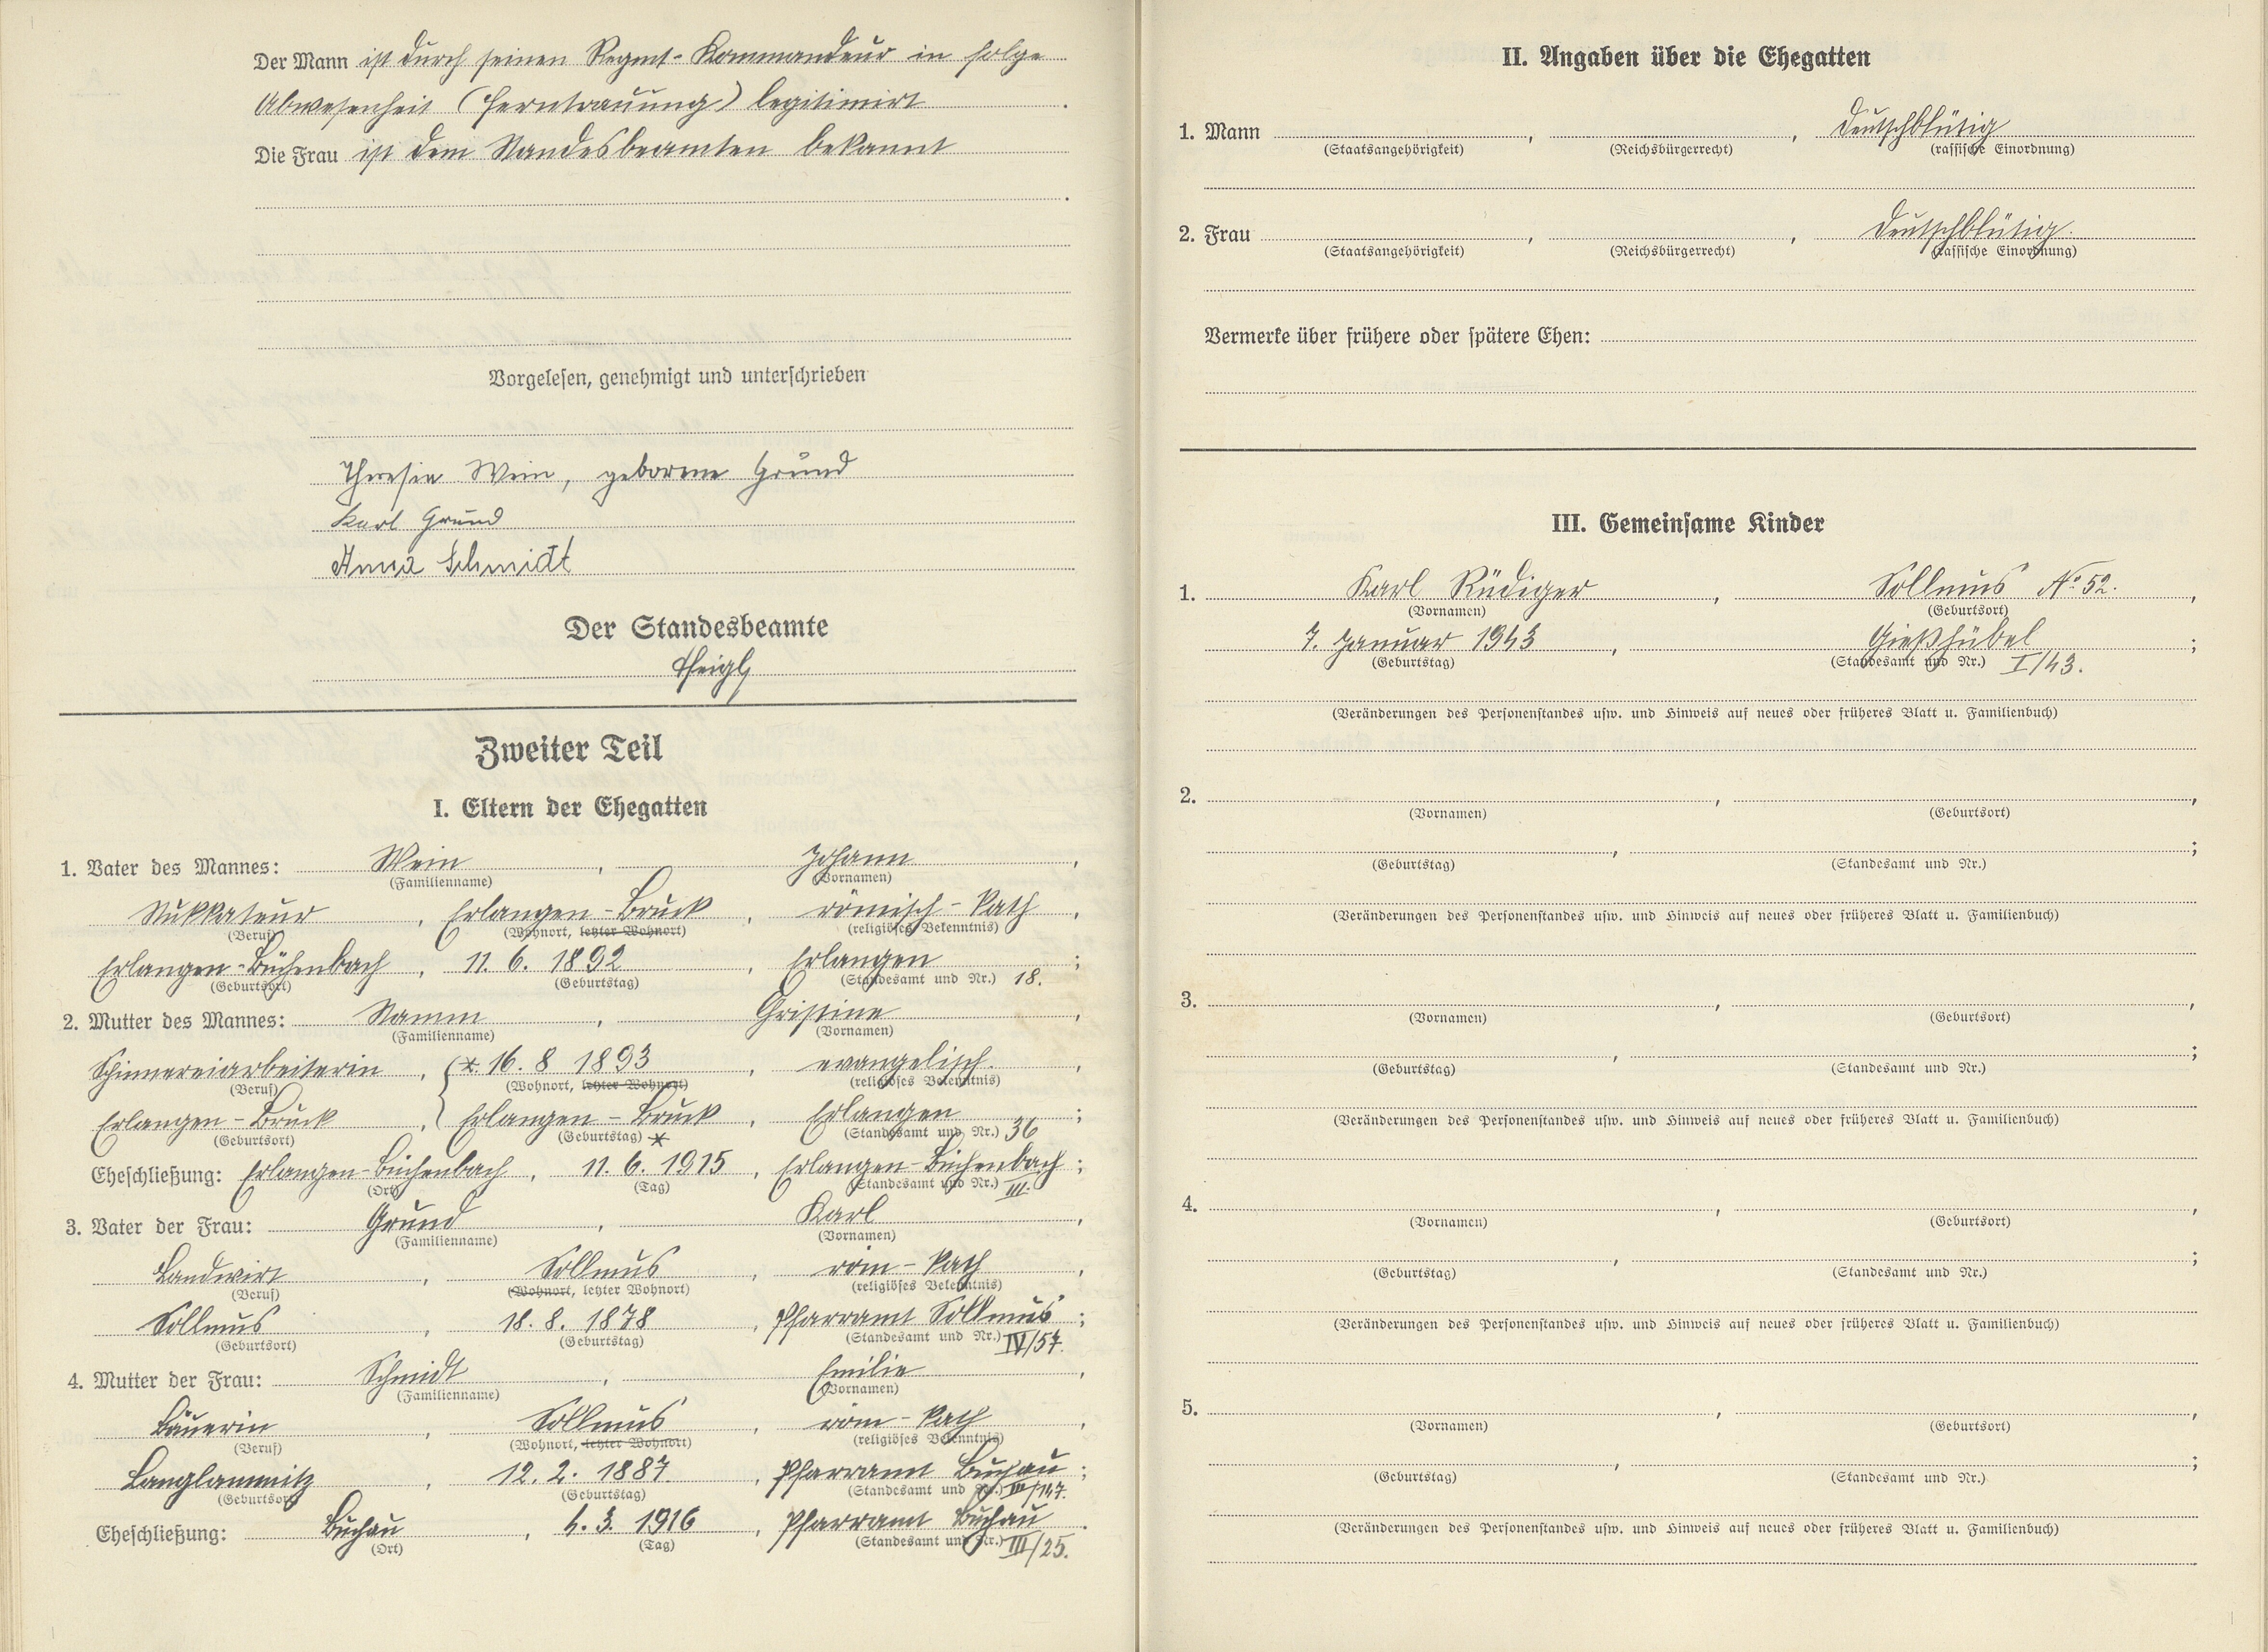 Der Mann ist durch seinen Regmt-Kommandeur in folge
Abwesenheit (Ferntrauung) legitimirt .
Die Frau ist dem Standesbeamten bekannt
.
Vorgelesen, genehmigt und unterschrieben
Theresia Wein, geborene Grund
Karl Grund
Anna Schmidt
Der Standesbeamte
Zweiter Teil
I. Eltern der Ehegatten
1. Vater des Mannes: Wein , Johann ,
(Familienname) (Vornamen)
Stukkateur , Erlangen-Bruck , römisch-kath ,
(Beruf) (Wohnort, letzter Wohnort) (religiöses Bekenntnis)
Erlangen-Büchenbach , 11. 6. 1892 , Erlangen ;
(Geburtsort) (Geburtstag) (Standesamt und Nr.) 18.
2. Mutter des Mannes: Stamm , Christine ,
(Familienname) (Vornamen)
Spinnereiarbeiterin , (*. 16. 8 1893 , evangelisch. ,
(Beruf) (Wohnort, letzter Wohnort) (religiöses Bekenntnis)
Erlangen-Bruck , Erlangen-Bruck , Erlangen ;
(Geburtsort) (Geburtstag) * (Standesamt und Nr.) 36
Eheschließung: Erlangen-Büchenbach , 11. 6. 1915 , Erlangen-Büchenbach ;
(Ort) (Tag) (Standesamt und Nr.) III.
3. Vater der Frau: Grund , Karl ,
(Familienname) (Vornamen)
Landwirt , Sollmus , röm-kath ,
(Beruf) (Wohnort, letzter Wohnort) (religiöses Bekenntnis)
Sollmus , 18. 8. 1878 , Pfarramt Sollmus ;
(Geburtsort) (Geburtstag) (Standesamt und Nr.) IV/57.
4. Mutter der Frau: Schmidt , Emilie ,
(Familienname) (Vornamen)
Bäuerin , Sollmus , röm-kath ,
(Beruf) (Wohnort, letzter Wohnort) (religiöses Bekenntnis)
Langlammitz , 12. 2. 1887 , Pfarramt Buchau ;
(Geburtsort) (Geburtstag) (Standesamt und Nr.) III/147.
Eheschließung: Buchau , 4. 3. 1916 , Pfarramt Buchau .
(Ort) (Tag) (Standesamt und Nr.) III/25.
II. Angaben über die Ehegatten
1. Mann , , deutschblütig
(Staatsangehörigkeit) (Reichsbürgerrecht) (rassische Einordnung)
2. Frau , , deutschblütig.
(Staatsangehörigkeit) (Reichsbürgerrecht) (rassische Einordnung)
Vermerke über frühere oder spätere Ehen:
III. Gemeinsame Kinder
1. Karl Rüdiger , Sollmus No 52. ,
(Vornamen) (Geburtsort)
7. Januar 1943 , Gießhübel ;
(Geburtstag) (Standesamt und Nr.) I/43.
(Veränderungen des Personenstandes usw. und Hinweis auf neues oder früheres Blatt u. Familienbuch)
2. , ,
(Vornamen) (Geburtsort)
, ;
(Geburtstag) (Standesamt und Nr.)
(Veränderungen des Personenstandes usw. und Hinweis auf neues oder früheres Blatt u. Familienbuch)
3. , ,
(Vornamen) (Geburtsort)
, ;
(Geburtstag) (Standesamt und Nr.)
(Veränderungen des Personenstandes usw. und Hinweis auf neues oder früheres Blatt u. Familienbuch)
4. , ,
(Vornamen) (Geburtsort)
, ;
(Geburtstag) (Standesamt und Nr.)
(Veränderungen des Personenstandes usw. und Hinweis auf neues oder früheres Blatt u. Familienbuch)
5. , ,
(Vornamen) (Geburtsort)
, ;
(Geburtstag) (Standesamt und Nr.)
(Veränderungen des Personenstandes usw. und Hinweis auf neues oder früheres Blatt u. Familienbuch)